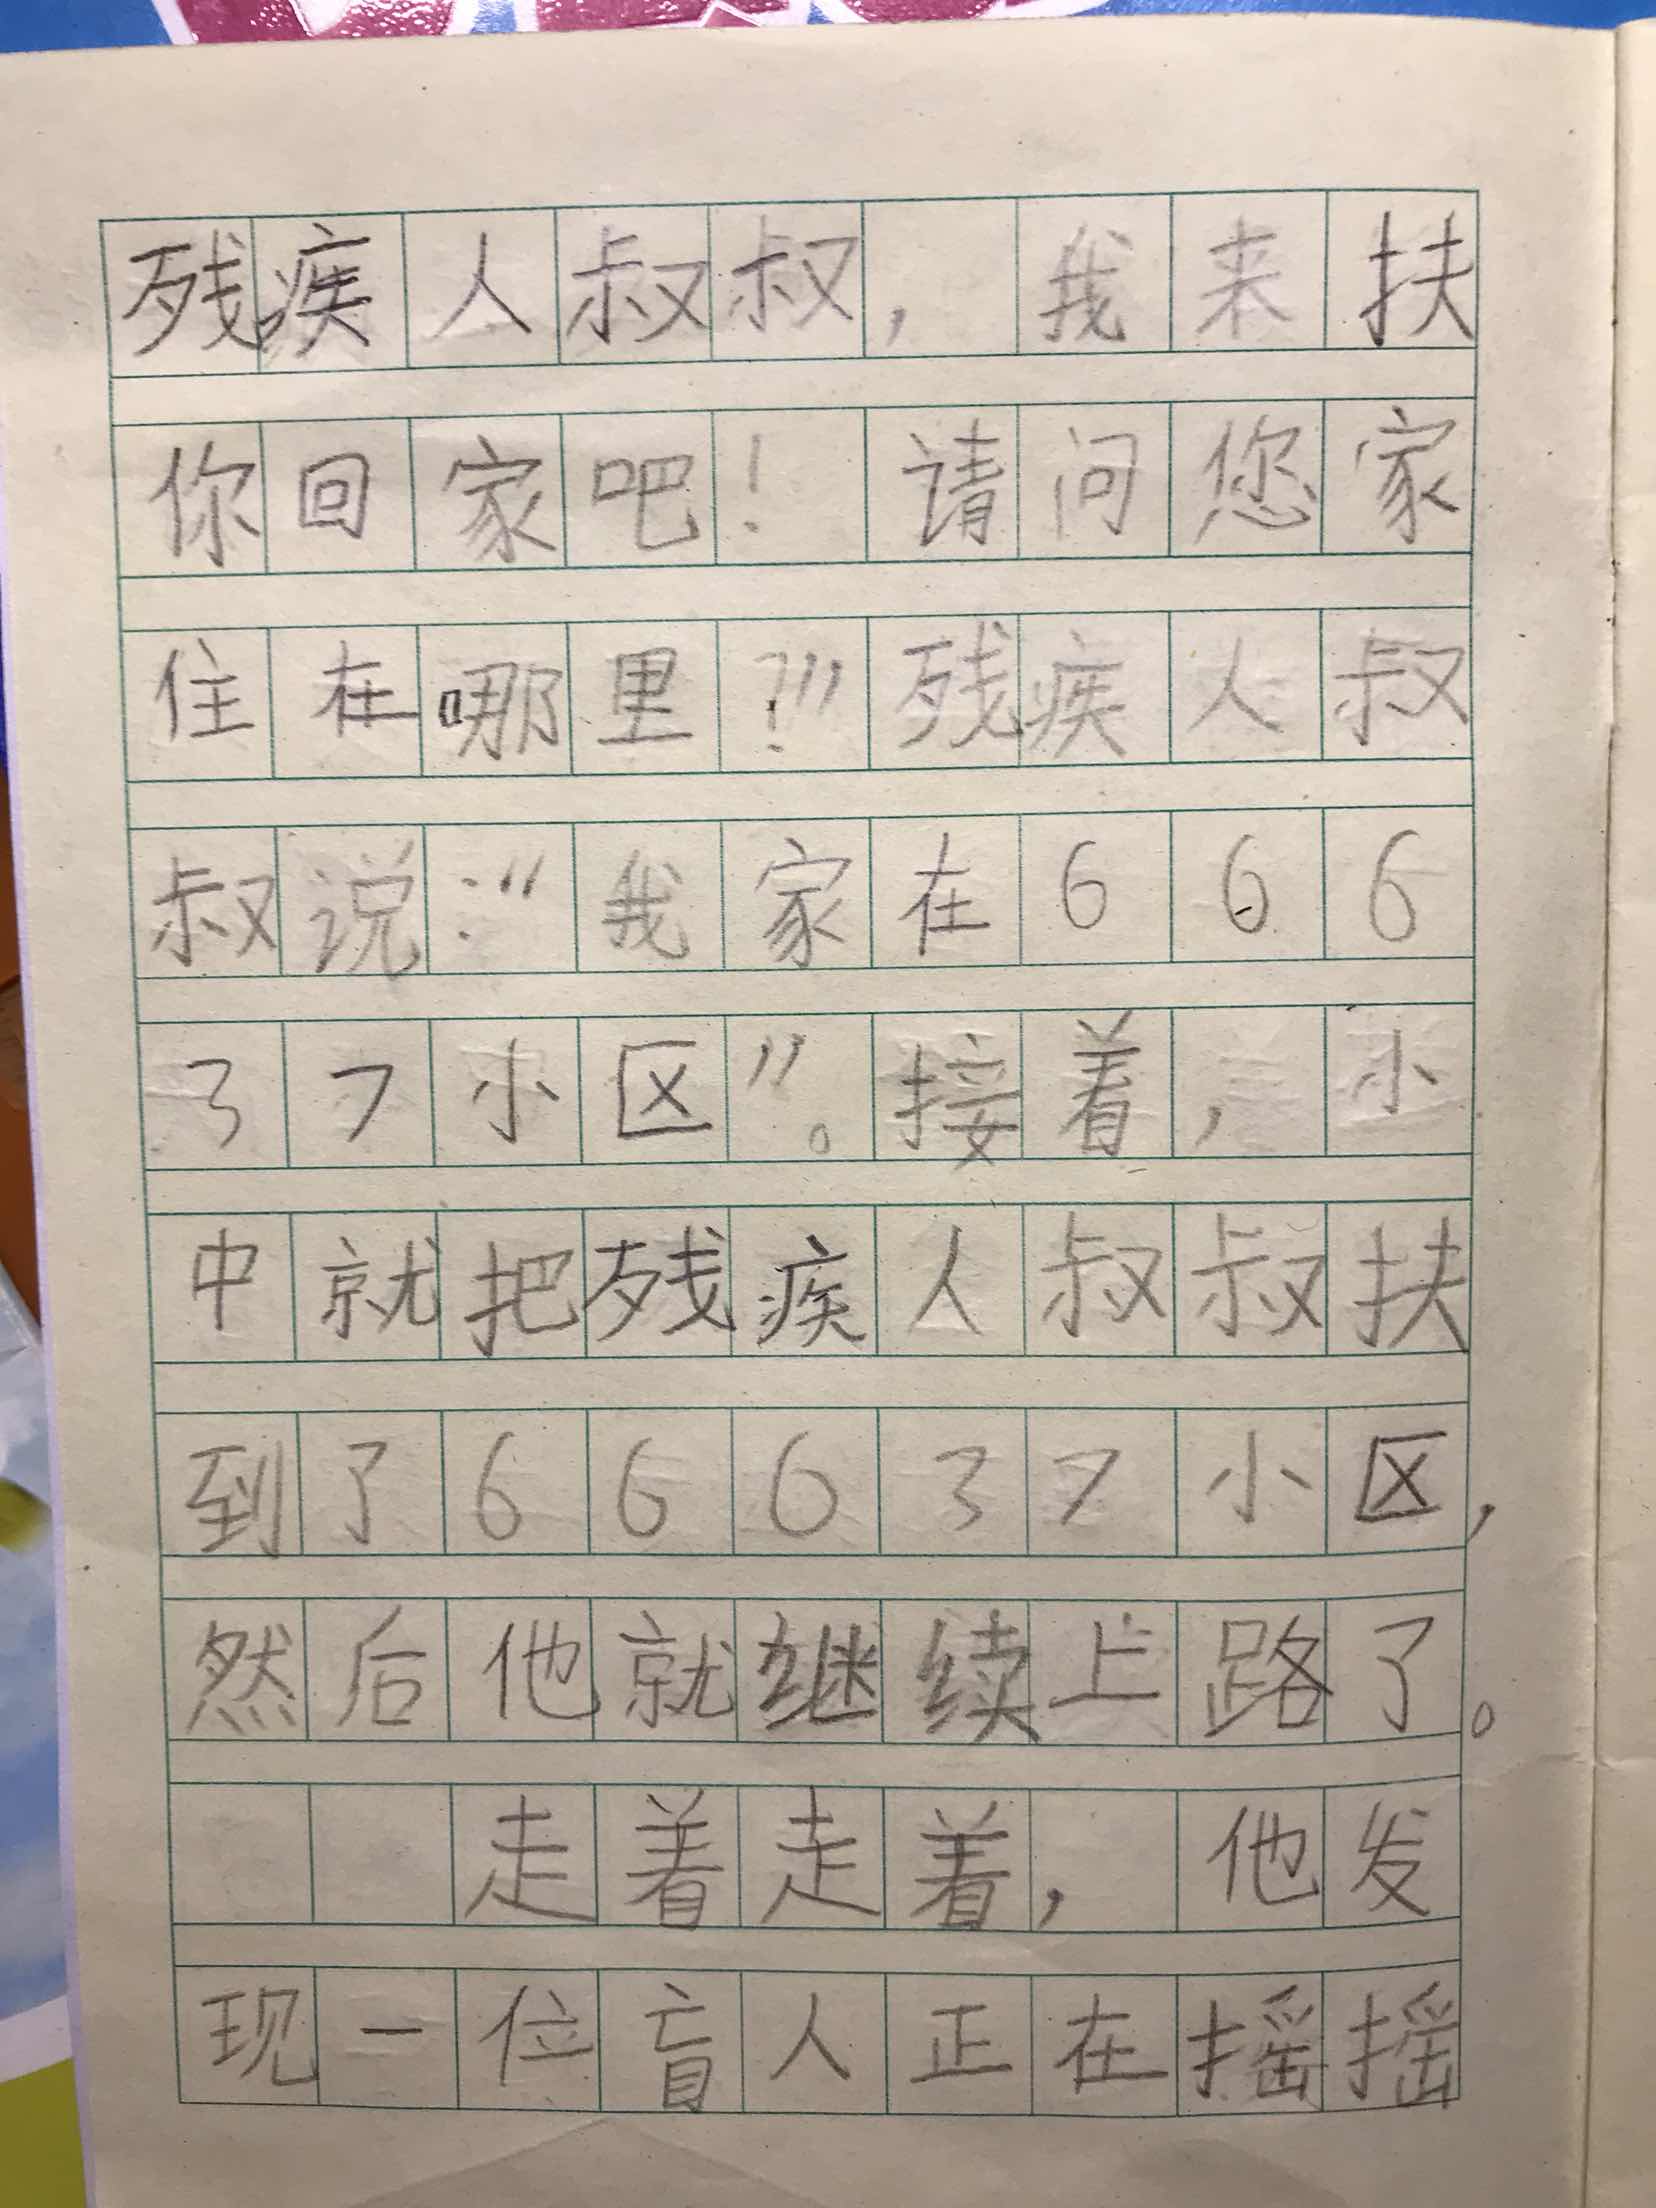 残疾人叔叔，我来扶
你回家吧！请问您家
住在哪里？”残疾人叔
叔说：“我家在666
37小区”。接着，小
中就把残疾人叔叔扶
到了66637小区，
然后他就继续上路了。
走着走着，他发
现一位盲人正在摇摇